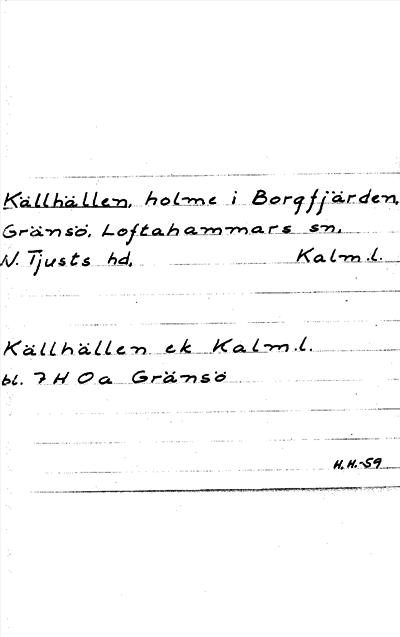 Källhällen, holme i Borgfjärden,
Gränsö, Loftahammars sn,
N. Tjusts hd, Kalm.l.
Källhällen ek Kalm.l.
bl. 7 H 0a Gränsö
H.H.-59